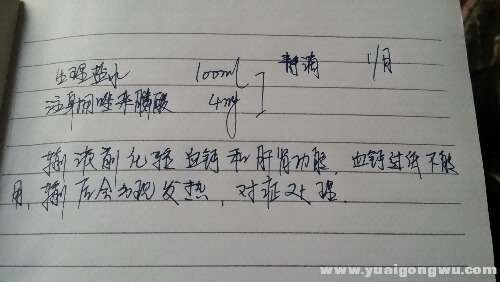 生理盐水 100ml 静滴 1/月
注射用唑来膦酸 4mg
输液前化验血钙和肝肾功能,血钙过低不能
用,输后会出现发热,对症处理.
www.yuaigongwu.com